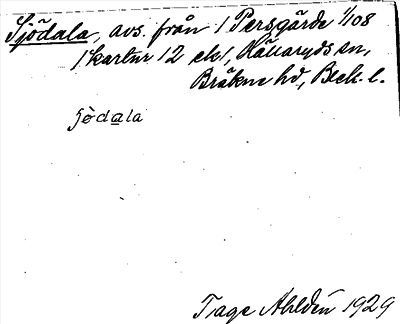 Sjödala, avs. från 1 Persgärde 1/108
1 kartur 12 ek/, Hällaryds sn,
Bräkne hd, Blek. l.
sjö̀dala
Tage Ahldén 1929